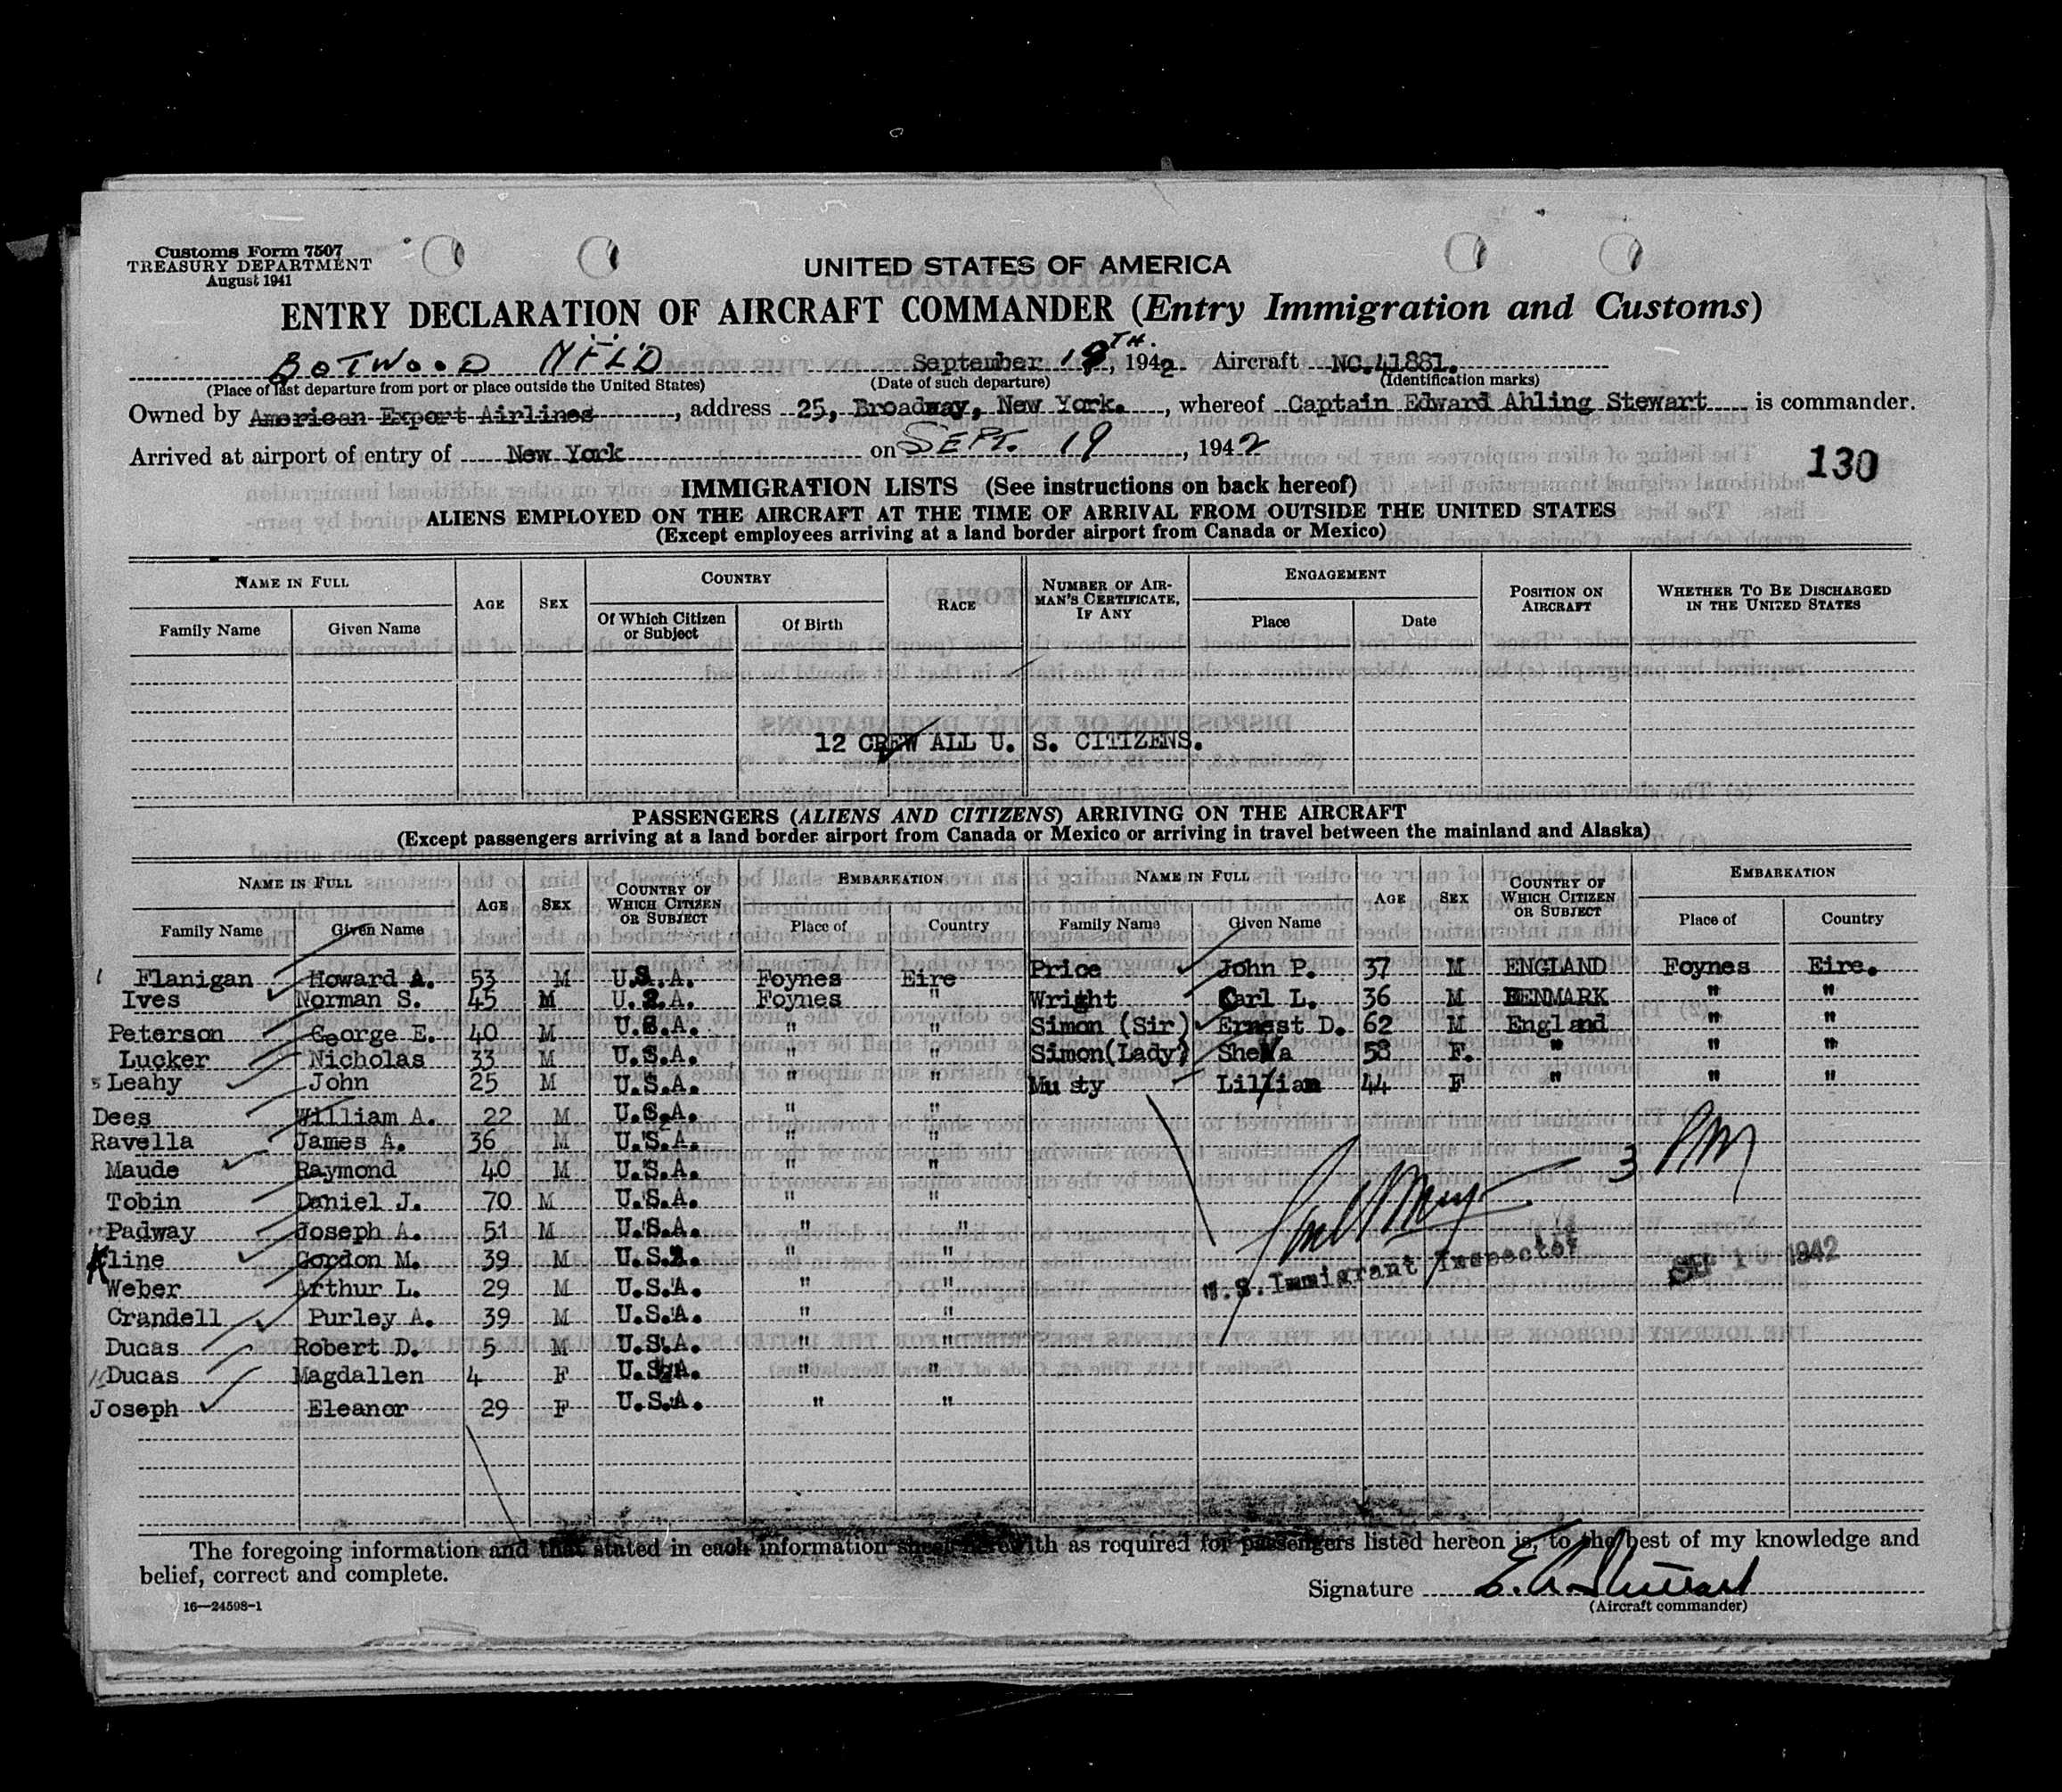 Customs Form 7507
TREASURY DEPARTMENT
August 1941
UNITED STATES OF AMERICA
ENTRY DECLARATION OF AIRCRAFT COMMANDER (Entry Immigration and Customs)
BOTWOOD NFL'D September 19TH., 1942 Aircraft NC.41881.
(Place of last departure from port or place outside the United States) (Date of such departure) (Identification marks)
Owned by American Export Airlines, address 25, Broadway, New York., whereof Captain Edward Ahling Stewart is commander.
Arrived at airport of entry of New York on SEPT. 19, 1942
130
IMMIGRATION LISTS (See instructions on back hereof)
ALIENS EMPLOYED ON THE AIRCRAFT AT THE TIME OF ARRIVAL FROM OUTSIDE THE UNITED STATES
(Except employees arriving at a land border airport from Canada or Mexico)
NAME IN FULL AGE SEX COUNTRY RACE NUMBER OF AIRMAN'S CERTIFICATE, IF ANY ENGAGEMENT POSITION ON AIRCRAFT WHETHER TO BE DISCHARGED IN THE UNITED STATES
Family Name Given Name Of Which Citizen or Subject Of Birth Place Date
12 CREW ALL U. S. CITIZENS.
PASSENGERS (ALIENS AND CITIZENS) ARRIVING ON THE AIRCRAFT
(Except passengers arriving at a land border airport from Canada or Mexico or arriving in travel between the mainland and Alaska)
NAME IN FULL AGE SEX COUNTRY OF WHICH CITIZEN OR SUBJECT EMBARKATION NAME IN FULL AGE SEX COUNTRY OF WHICH CITIZEN OR SUBJECT EMBARKATION
Family Name Given Name Place of Country Family Name Given Name Place of Country
1 Flanigan Howard A. 53 M U.S.A. Foynes Eire Price John P. 37 M ENGLAND Foynes Eire.
Ives Norman S. 45 M U.S.A. Foynes " Wright Carl L. 36 M DENMARK " "
Peterson George E. 40 M U.S.A. " " Simon (Sir) Ernest D. 62 M England " "
Lucker Nicholas 33 M U.S.A. " " Simon (Lady) Shena 58 F. " " "
5 Leahy John 25 M U.S.A. " " Musty Lillian 44 F " " "
Dees William A. 22 M U.S.A. " "
Ravella James A. 36 M U.S.A. " "
Maude Raymond 40 M U.S.A. " " 3
Tobin Daniel J. 70 M U.S.A. " "
Padway Joseph A. 51 M U.S.A. " "
Kline Gordon M. 39 M U.S.A. " " U.S. Immigrant Inspector SEP 19 1942
Weber Arthur L. 29 M U.S.A. " "
Crandell Purley A. 39 M U.S.A. " "
Ducas Robert D. 5 M U.S.A. " "
Ducas Magdallen 4 F U.S.A. " "
Joseph Eleanor 29 F U.S.A. " "
The foregoing information and that stated in each information sheet herewith as required for passengers listed hereon is, to the best of my knowledge and
belief, correct and complete.
Signature E. A. Stewart
(Aircraft commander)
16—24598-1